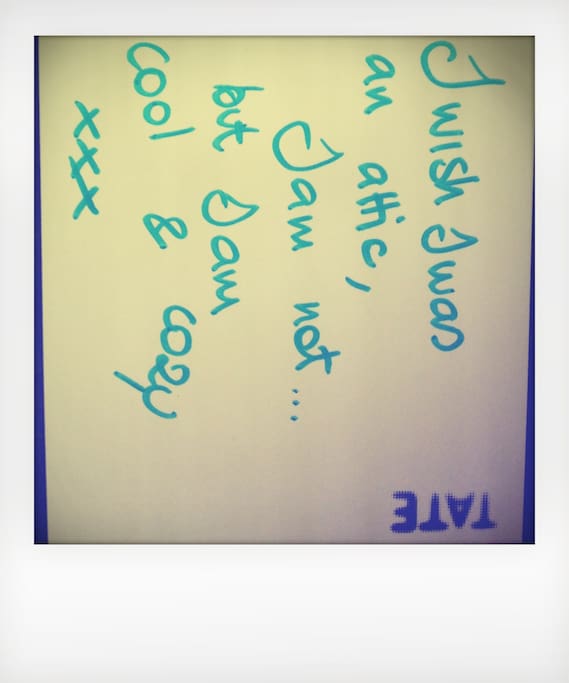 I wish I was
an attic,
I am not...
but I am
cool & cozy
xxx
TATE